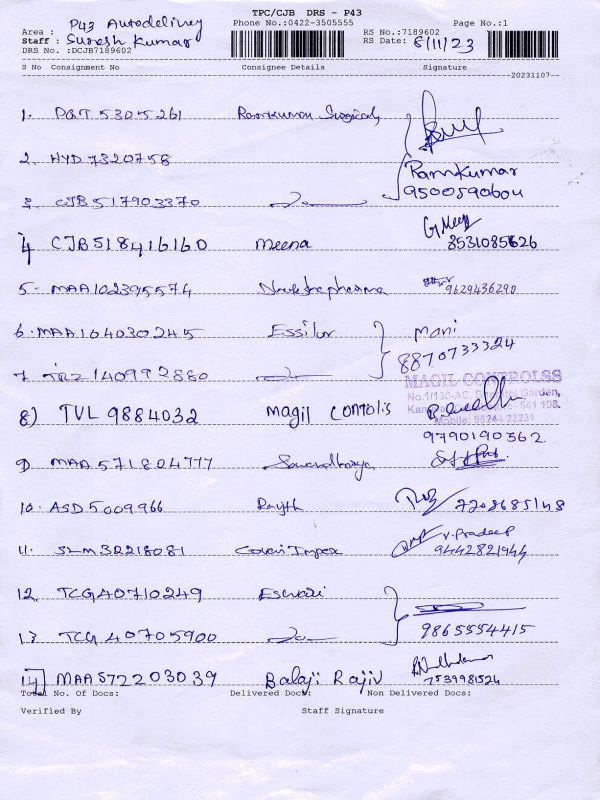 TPC/CJB DRS - P43
Area : P43 Autodelivery Phone No.:0422-3505555 RS No.:7189602 Page No.:1
Staff : Suresh Kumar RS Date: 6/11/23
DRS No. :DCJB7189602
S No Consignment No Consignee Details Signature
20231107
1. PGT 5305261 Ramkumar Surgicals
2. HYD 7320758 Ramkumar
9500590604
3. CJB 517903370
4 CJB518416160 Meena 8531085626
5- MAA102395574 9629436290
6. MAA104030245 Essilor Mani
8870733324
7. 140992880
MAGIL CONTROLSS
No.1/130-AC, Garden,
641 108.
Mobile: 98244 23231
8) TVL 9884032 Magil Contolis
9790190362
9) MAA 571804777 Soundharya
10. ASD 5009966 7708685148
11. SLM32218081 Covai Impex V. Pradeep
9442821944
12. TCG40710249 Eswari
13. TCG 40705900 9865554415
14) MAA572203039 Balaji Rajiv 7539981524
Total No. Of Docs: Delivered Docs: Non Delivered Docs:
Verified By Staff Signature